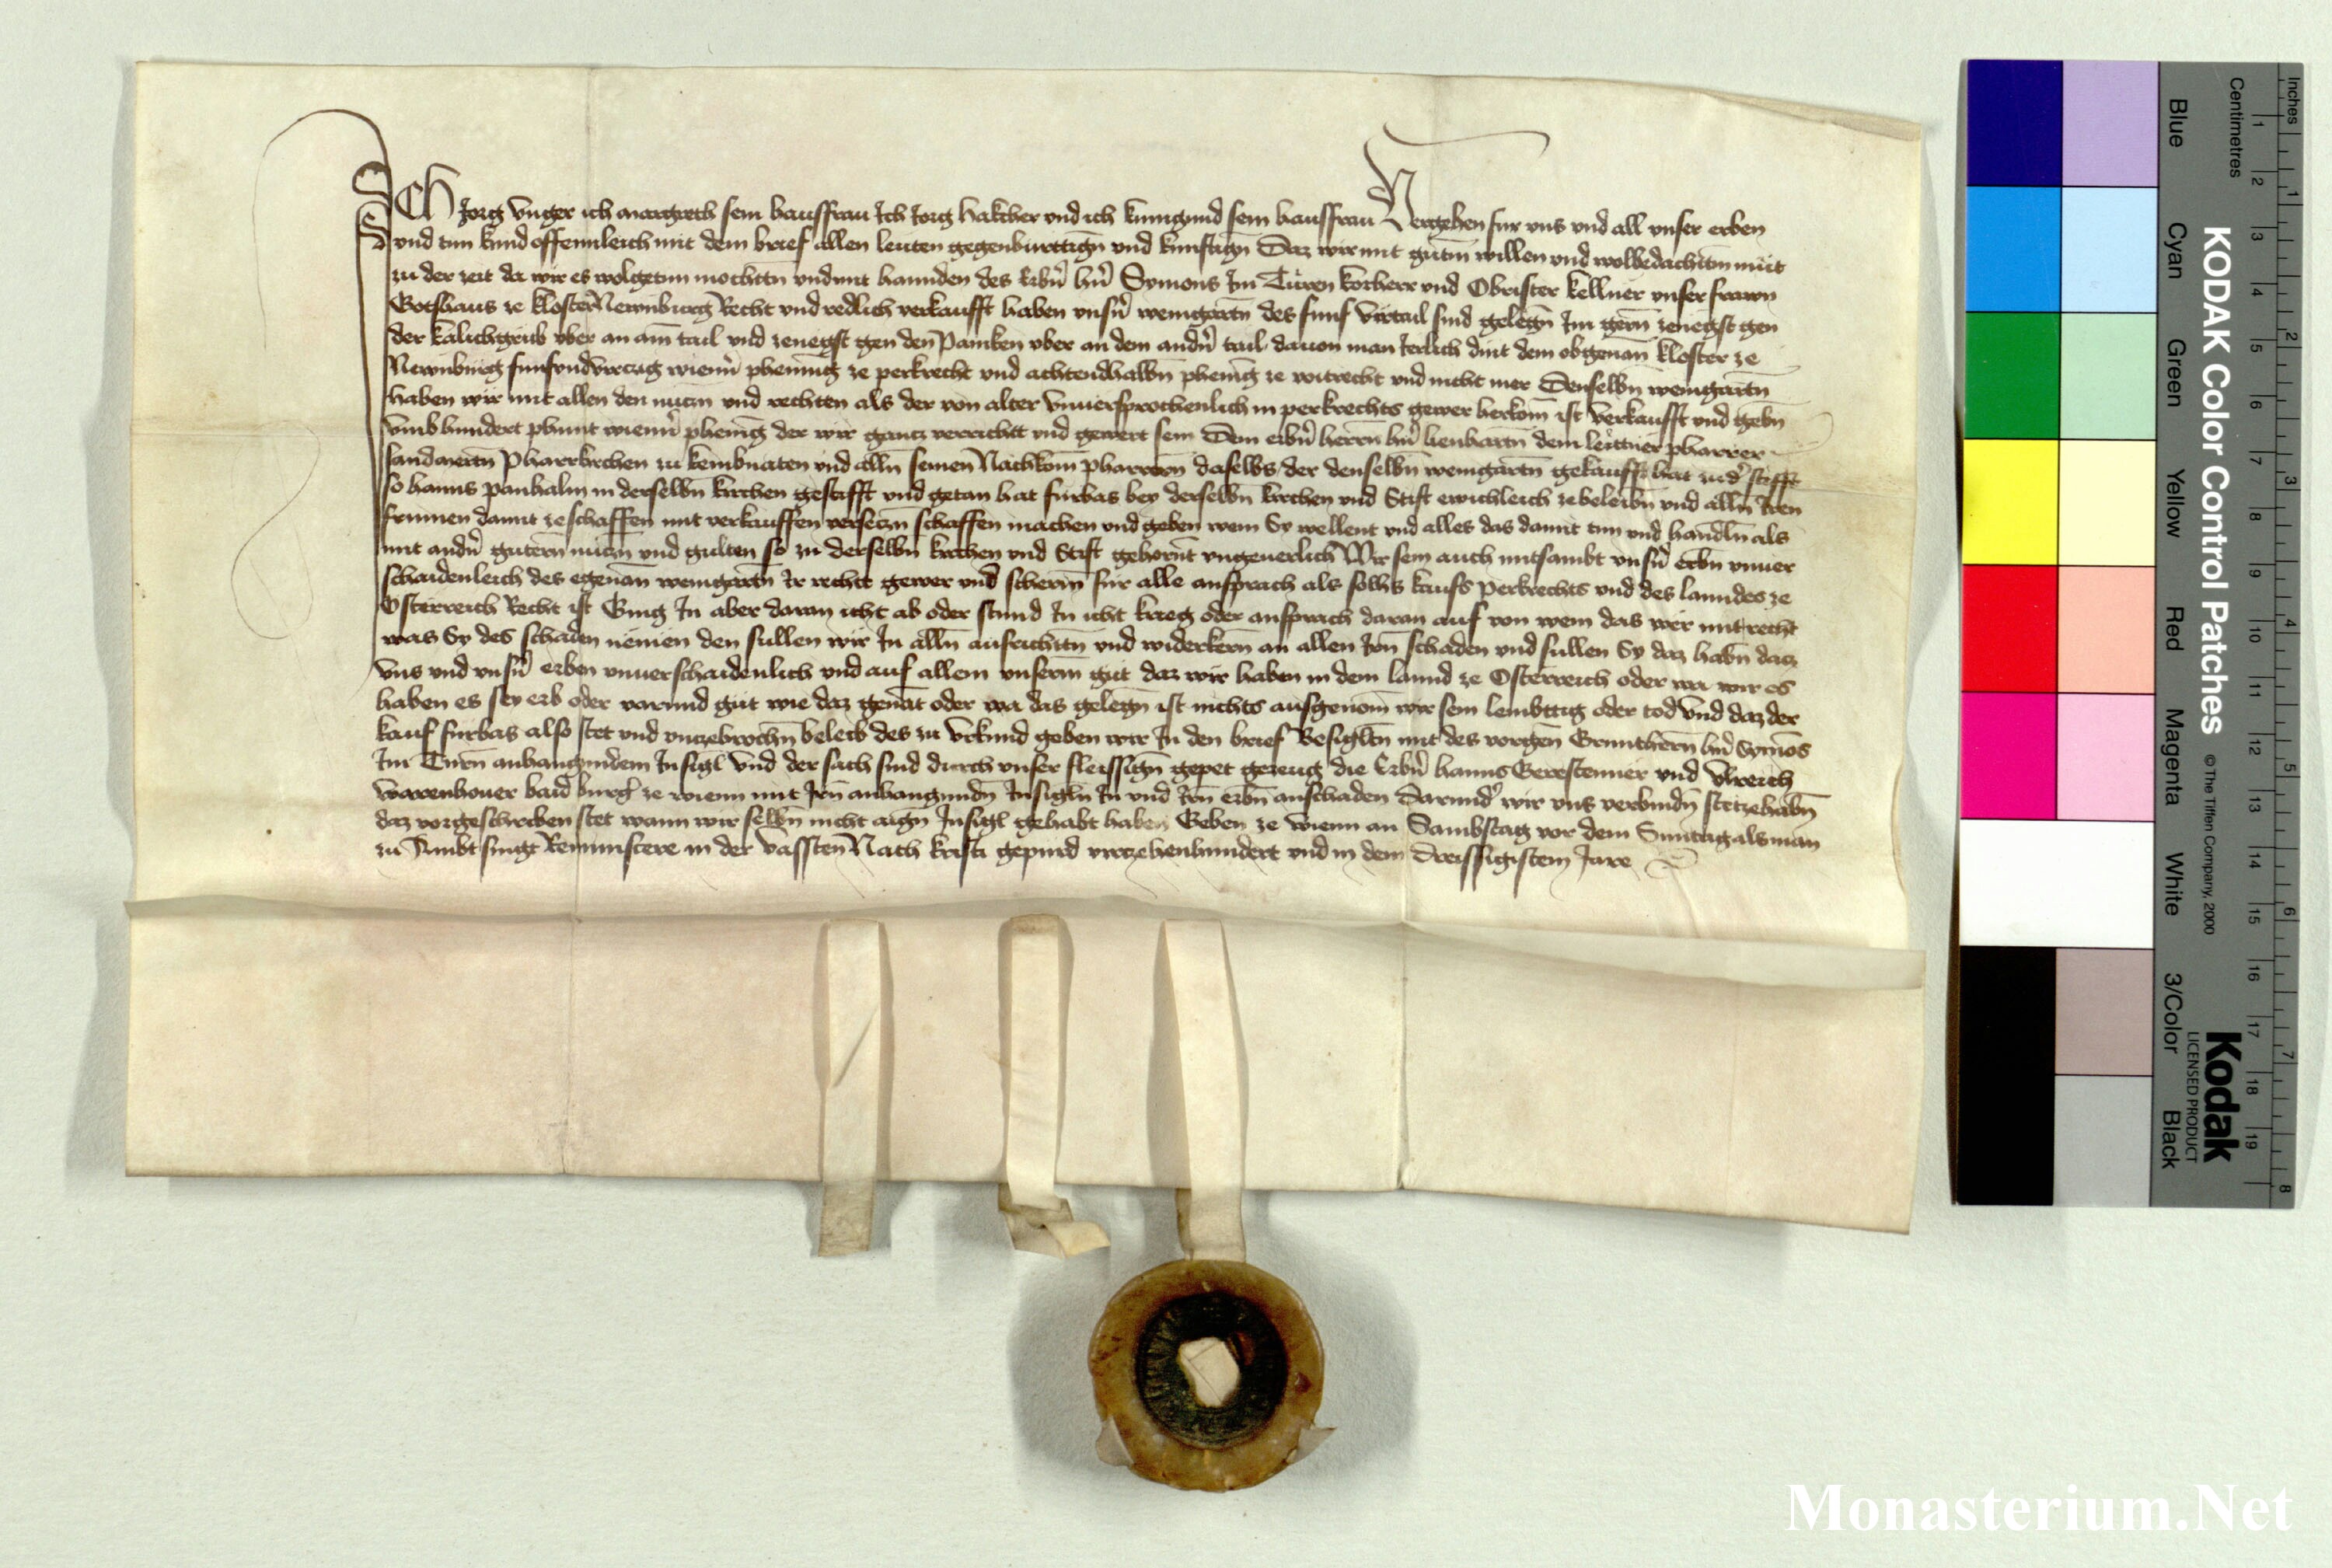 Ich Jorg Vnger ich margreth sein hausfrau Ich Jorg hakcher vnd ich kunigund sein hausfrau Vergehen fur vns vnd all vnser erben
vnd tun kund offennleich mit dem brief allen leuten gegenburttign̄ vnd kunftign̄ Daz wir mit gutm̄ willen vnd wolbedachtm̄ mut
zu der zeit da wir es wolgetun mochten vnd mit hannden des Erbn̄ hn̄ Symons Im Turen korherr vnd Obrister kellner vnser frawn
Gotshaus ze klosterNewnburg Recht vnd redlich verkaufft haben vnsn̄ weingartn̄ des funf virtail sind gelegn̄ Im gern̄ zenegst gen
der kalichgrub vber an aim tail vnd zenegst gen den Paniken vber an dem andn̄ tail dauon man Jerlich dint dem obgenan̄ kloster ze
Newnburg funfvndvirczig wienn̄ phennig ze perkrecht vnd achtendhalbn phenig ze voitrecht vnd nicht mer Denselbn weingartn̄
haben wir mit allen den nuczn̄ vnd rechten als der von alter vnuersprochenlich in perkrechts gewer herkom̄ ist verkaufft vnd gebn̄
vmb hundert phunt wienn̄ phenig der wir gancz verrichtt vnd gewert sein Dem erbn̄ herrn hn̄ lienhartn̄ dem leittner pharrer
sand mertn̄ Pharrkirchen zu kembnaten vnd alln̄ seinen Nachkom̄ pharrern daselbs der denselbn̄ weingartn̄ gekaufft hat zu d' stifft
so hanns panhalm in derselbn̄ kirchen gestifft vnd getan hat furbas bey derselbn kirchen vnd Stift ewichleich zebeleibn̄ vnd alln̄ Iren
frumen damit zeschaffen mit verkauffen verseczn̄ schaffen machen vnd geben wem Sy wellent vnd alles das damit tun vnd handln̄ als
mit andn̄ gutern nuczn̄ vnd gulten so zu derselbn kirchen vnd Stift gehornt vngeuerlich Wir sein auch mitsambt vnsn̄ erbn̄ vnuer
schaidenleich des egenan̄ weingartn̄ Ir rechtt gewer vnd scherm̄ fur alle ansprach als solhs kaufs perkrechts vnd des lanndes ze
Osterreich Recht ist Ging In aber daran icht ab oder stund In icht krieg oder ansprach daran auf von wem das wer mit recht
was Sy des schaden nemen den sullen wir In alln̄ ausrichtn̄ vnd widerkern̄ an allen Irn̄ schaden vnd sullen Sy daz habn̄ dacz
vns vnd vnsn̄ erben vnuerschaidenlich vnd auf allem vnserm̄ gut daz wir haben in dem lannd ze Osterreich oder wa wir es
haben es sey erb oder varund gut wie daz genāt oder wa das gelegn̄ ist nichts ausgenom̄ wir sein lembttig oder tod Vnd daz der
kauf furbas also stet vnd vnczebrochn̄ beleib des zu vrkund geben wir In den brief Besigltn̄ mit des vorgen̄ Gruntherrn hn̄ Symōs
Im Turn̄ anhangundem Insigl Vnd der sach sind durch vnser fleissign̄ gepet gezeug die Erbn̄ hanns Gerestenner vnd Vlreich
Warrenhouer baid burg' ze wienn mit Irn̄ anhangundn̄ Insigln̄ In vnd Irn̄ erbn̄ anschaden Darund' wir vns verbindn̄ stetzehabn̄
daz vorgeschriben stet wann wir selbn̄ nicht aign̄ Insigl gehabt haben Geben ze Wienn an Sambstag vor dem Suntag als man
zu Ambt singt Reminiscere in der Vassten Nach kristi gepurd virczehenhundert vnd in dem Dreissigistem Jare
KODAK Color Control Patches
© The Tiffen Company, 2000
Kodak
LICENSED PRODUCT
Inches
Centimetres
Blue
Cyan
Green
Yellow
Red
Magenta
White
3/Color
Black
Monasterium.Net